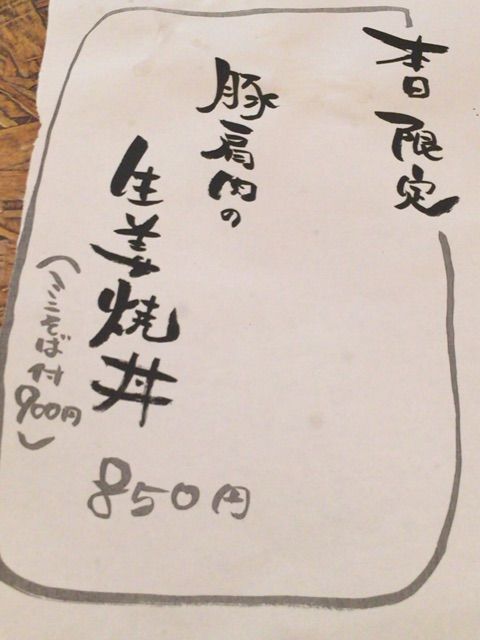 本日限定
豚肩肉の
生姜焼丼
850円
(ミニそば付
900円)